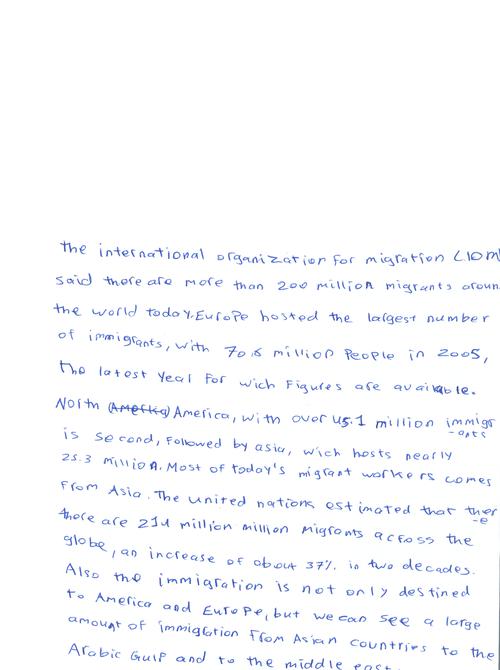 the international organization for migration (IOM
said there are more than 200 million migrants aroun
the world today. Europe hosted the largest number
of immigrants, with 70.6 million People in 2005,
the latest Year for wich Figures are available.
North America, with over 45.1 million immigr
-ants
is second, followed by asia, wich hosts nearly
25.3 million. Most of today's migrant workers comes
From Asia. The united nations estimated that ther
-e
there are 214 million million migrants across the
globe, an increase of about 37% in two decades.
Also the immigration is not only destined
to America and Europe, but we can see a large
amount of immigration From Asian countries to the
Arabic Gulf and to the middle east.